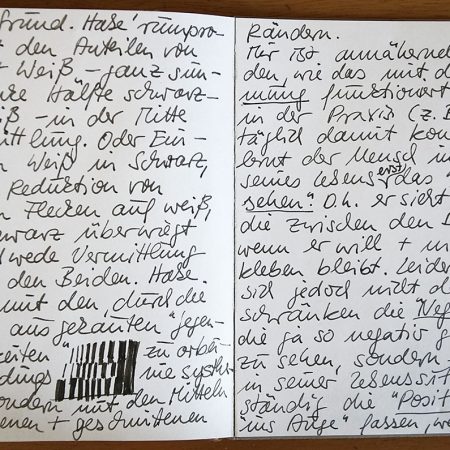 grund. Habe rumpro-
den Anteilen von
Weiß – ganz sim-
Hälfte schwarz–
iß – in der Mitte
ittlung. Oder Ein-
Weiß in Schwarz,
Reduktion von
Flecken auf weiß,
hwarz überwiegt
wede Vermittlung
den Beiden. Habe
mit den, durch die
ausgekauten "gegen-
zeiten" zu arbei-
dings nie syste-
sondern mit den Mitteln
enen + geschnittenen
Rändern.
Mir ist annähernd
den, wie das mit d
nung funktioniert
in der Praxis (z. B
täglich damit kon
lernt der Mensch im
seines Lebens erst "das
sehen". D.h. er sieht
die zwischen den D
wenn er will + ni
kleben bleibt. Leider
sich jedoch nicht d
schränken die "Neg
die ja so negativ g
zu sehen, sondern
in seiner Lebenssit
ständig die "Posit
"ins Auge" fassen, we